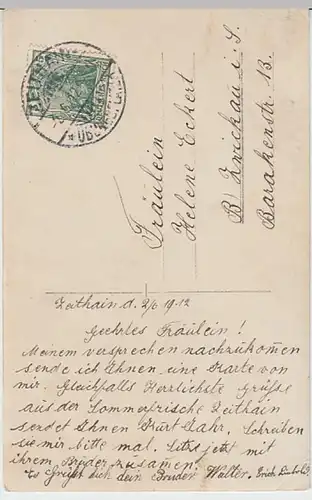 ZEITHAIN
ÜBUNGSPLATZ
Fräulein
Helene Eckert
B/ Zwickau i. S.
Barakenstr. 13.
Zeithain d. 2/6 1912
Geehrtes Fräulein!
Meinem versprechen nachzukommen
sende ich Ihnen eine Karte von
mir. Gleichfalls Herrlichste Grüsse
aus der Sommerfrische Zeithain
sendet Ihnen Kurt Jahr. Schreiben
sie mir bitte mal. Sitze jetzt mit
ihrem Bruder zusamen.
Es Grüßt dich dein Bruder Walter. Erich